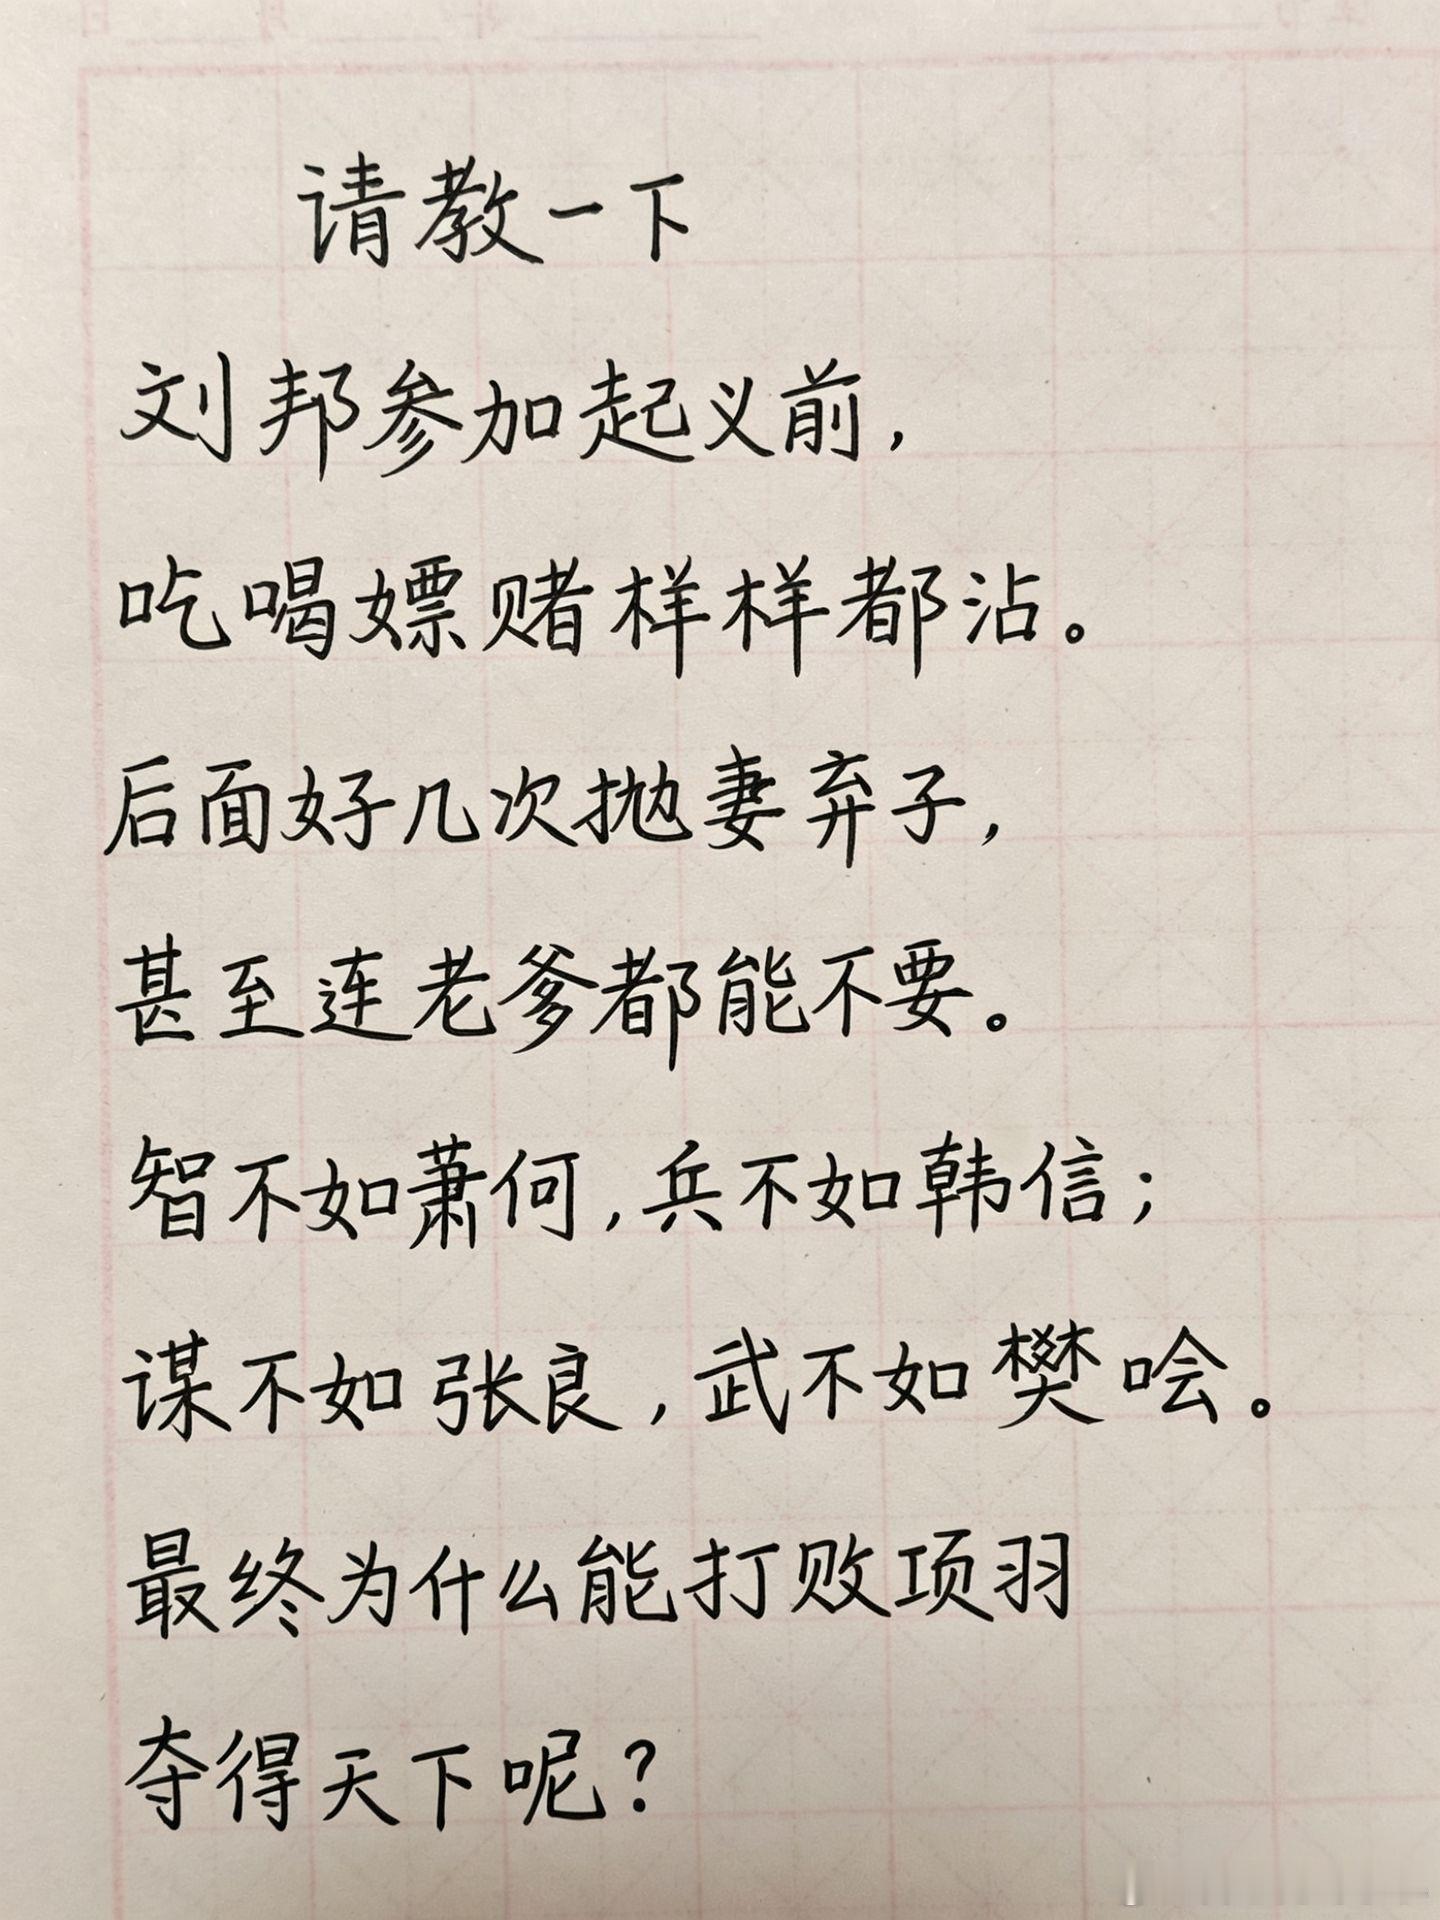 请教一下
刘邦参加起义前，
吃喝嫖赌样样都沾。
后面好几次抛妻弃子，
甚至连老爹都能不要。
智不如萧何，兵不如韩信；
谋不如张良，武不如樊哙。
最终为什么能打败项羽
夺得天下呢？